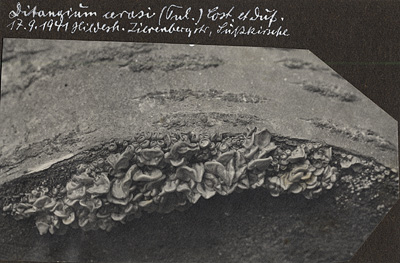 Ditangium cerasi (Tul.) Cost. et Duf.
17.9.1941 Hildesh. Zierenbergstr, Süßkirsche